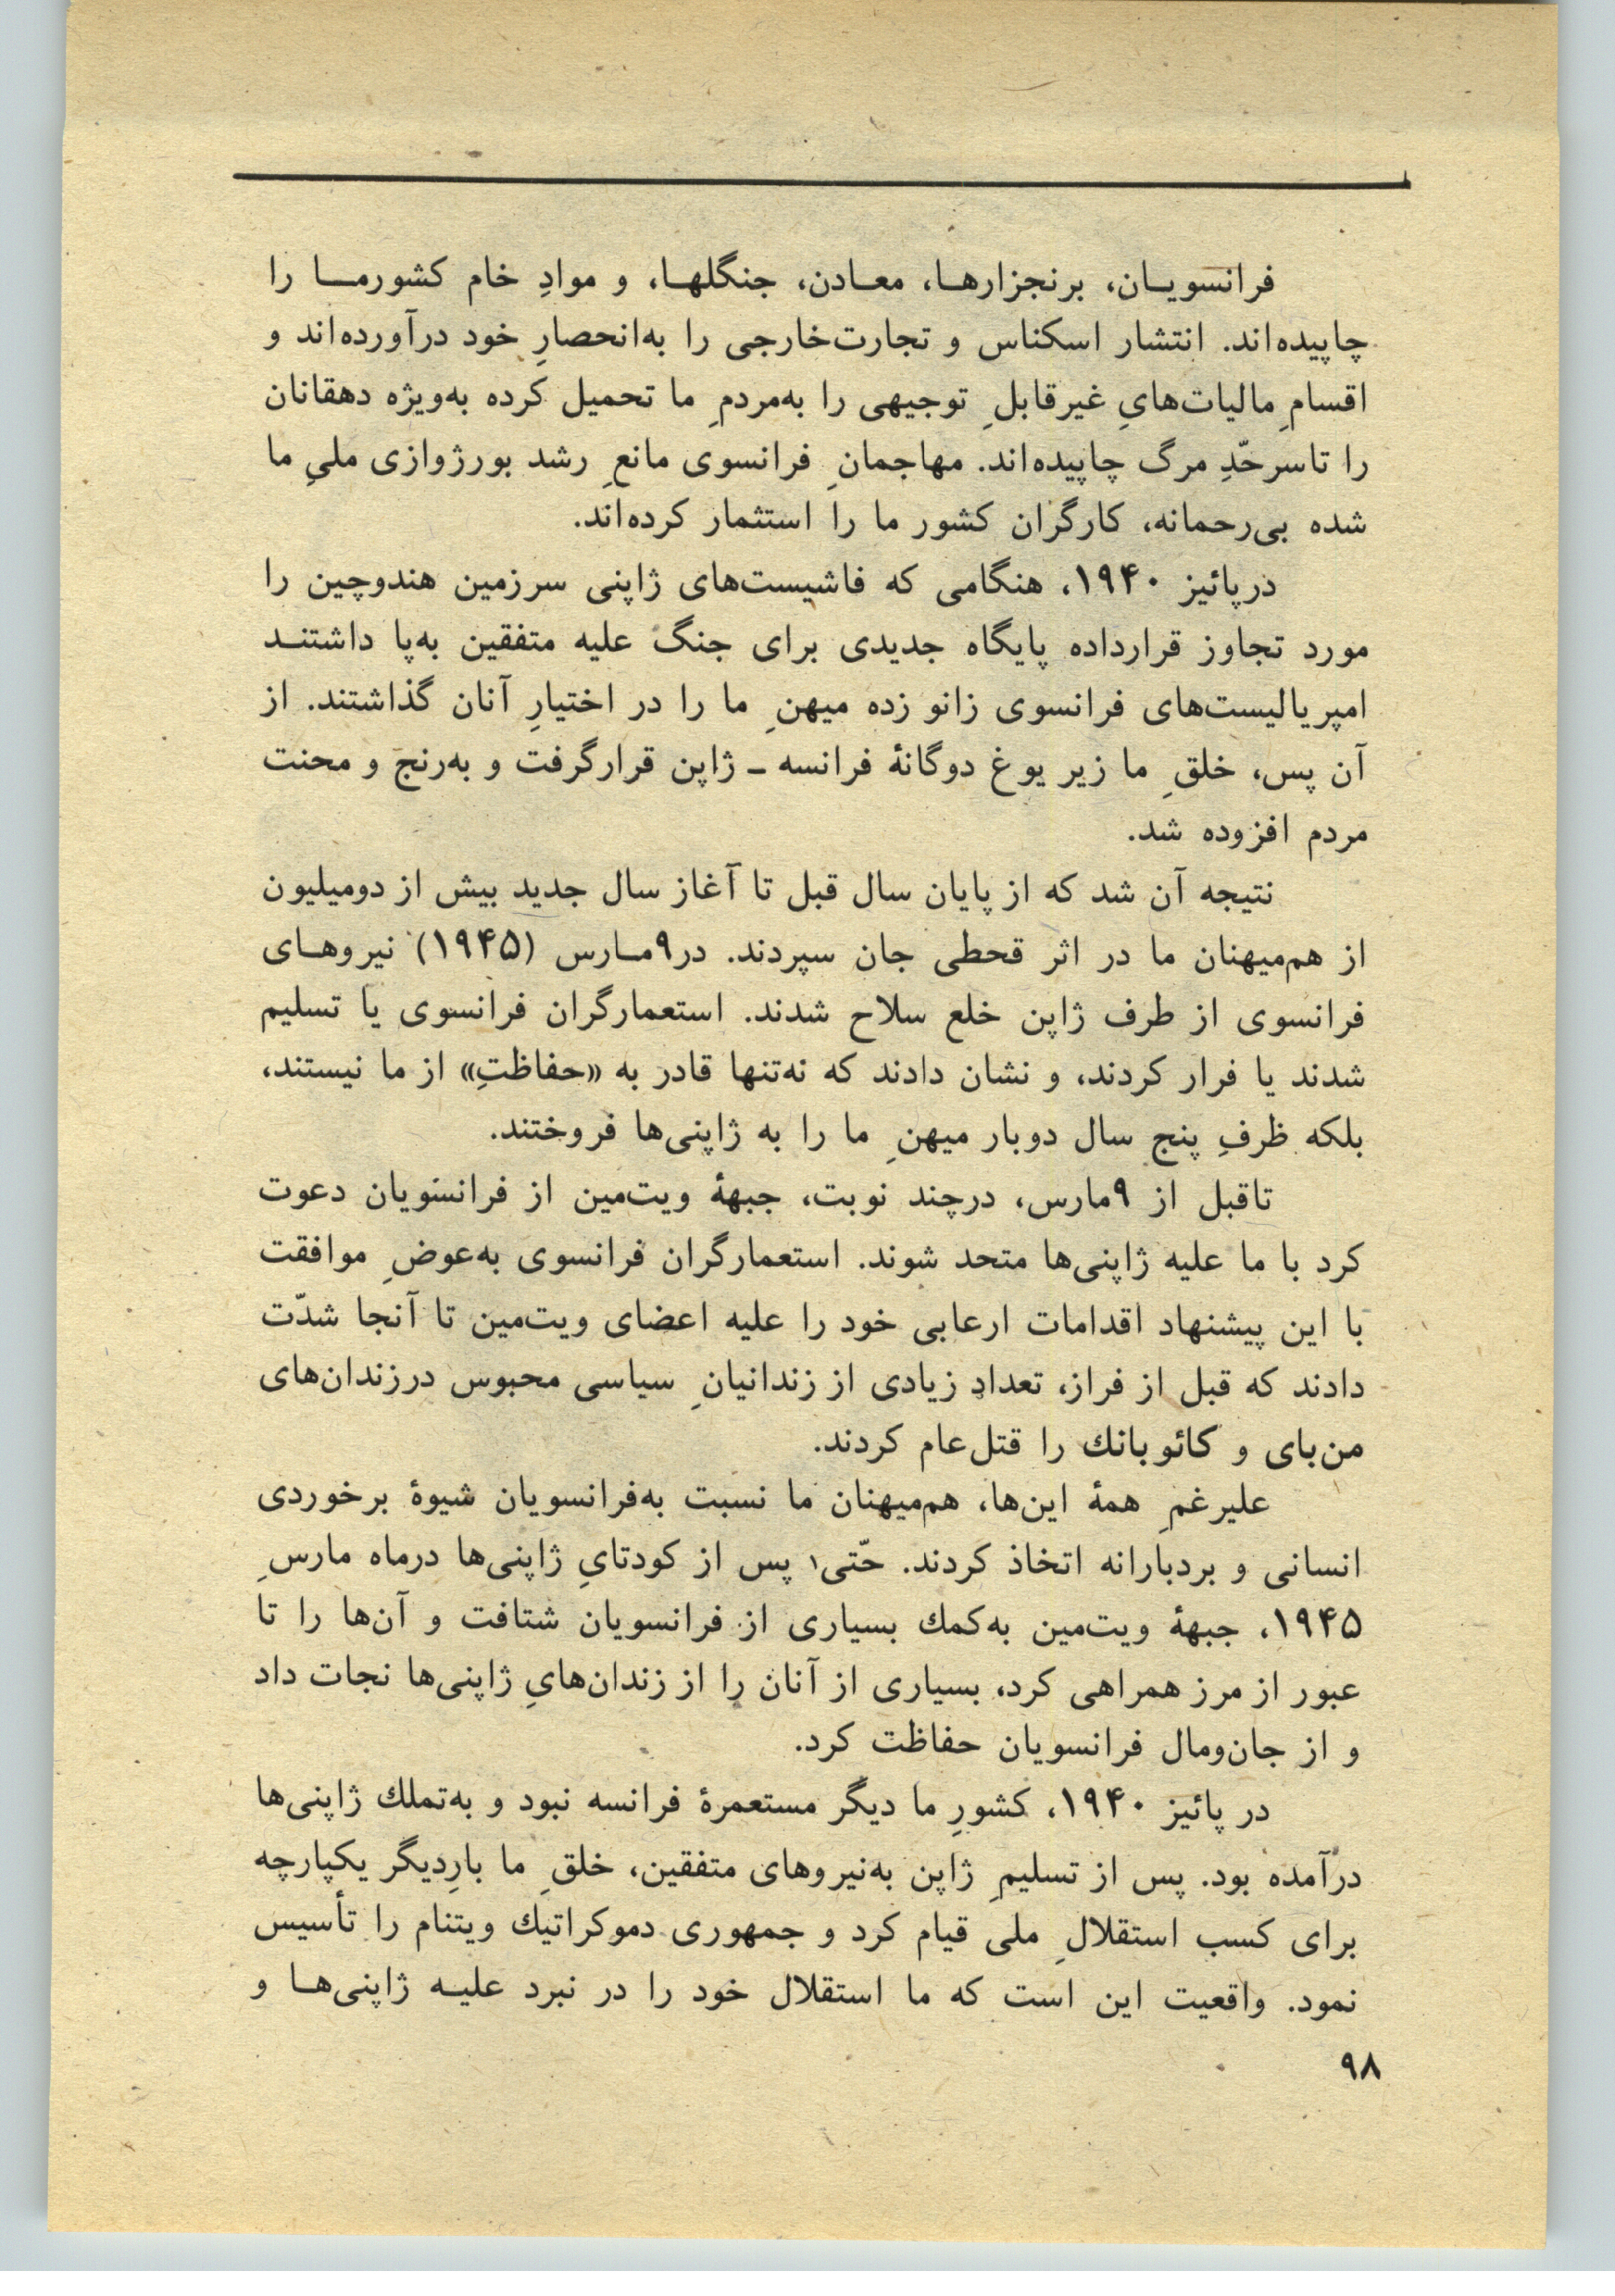 فرانسویـان، برنجزارهـا، معـادن، جنگلهـا، و موادِ خام کشورمـا را
چاپیده‌اند. انتشار اسکناس و تجارت‌خارجی را به‌انحصارِ خود درآورده‌اند و
اقسامِ مالیات‌هایِ غیرقابلِ توجیهی را به‌مردمِ ما تحمیل کرده به‌ویژه دهقانان
را تاسرحّدِ مرگ چاپیده‌اند. مهاجمانِ فرانسوی مانعِ رشد بورژوازی ملیِ ما
شده بی‌رحمانه، کارگران کشور ما را استثمار کرده‌اند.
درپائیز ۱۹۴۰، هنگامی که فاشیست‌های ژاپنی سرزمین هندوچین را
مورد تجاوز قرارداده پایگاه جدیدی برای جنگ علیه متفقین به‌پا داشتنـد
امپریالیست‌های فرانسوی زانو زده میهنِ ما را در اختیارِ آنان گذاشتند. از
آن پس، خلقِ ما زیر یوغ دوگانهٔ فرانسه ـ ژاپن قرارگرفت و به‌رنج و محنت
مردم افزوده شد.
نتیجه آن شد که از پایان سال قبل تا آغاز سال جدید بیش از دومیلیون
از هم‌میهنان ما در اثر قحطی جان سپردند. در۹مـارس (۱۹۴۵) نیروهـای
فرانسوی از طرف ژاپن خلع سلاح شدند. استعمارگران فرانسوی یا تسلیم
شدند یا فرار کردند، و نشان دادند که نه‌تنها قادر به «حفاظتِ» از ما نیستند،
بلکه ظرفِ پنج سال دوبار میهنِ ما را به ژاپنی‌ها فروختند.
تاقبل از ۹مارس، درچند نوبت، جبههٔ ویت‌مین از فرانسویان دعوت
کرد با ما علیه ژاپنی‌ها متحد شوند. استعمارگران فرانسوی به‌عوضِ موافقت
با این پیشنهاد اقدامات ارعابی خود را علیه اعضای ویت‌مین تا آنجا شدّت
دادند که قبل از فراز، تعدادِ زیادی از زندانیانِ سیاسی محبوس درزندان‌های
من‌بای و کائوبانك را قتل‌عام کردند.
علیرغمِ همهٔ این‌ها، هم‌میهنان ما نسبت به‌فرانسویان شیوهٔ برخوردی
انسانی و بردبارانه اتخاذ کردند. حّتی۱ پس از کودتایِ ژاپنی‌ها درماه مارسِ
۱۹۴۵، جبههٔ ویت‌مین به‌کمك بسیاری از فرانسویان شتافت و آن‌ها را تا
عبور از مرز همراهی کرد، بسیاری از آنان را از زندان‌هایِ ژاپنی‌ها نجات داد
و از جان‌ومال فرانسویان حفاظت کرد.
در پائیز ۱۹۴۰، کشورِ ما دیگر مستعمرهٔ فرانسه نبود و به‌تملك ژاپنی‌ها
درآمده بود. پس از تسلیمِ ژاپن به‌نیروهای متفقین، خلقِ ما بارِدیگر یکپارچه
برای کسب استقلالِ ملی قیام کرد و جمهوری دموکراتیك ویتنام را تأسیس
نمود. واقعیت این است که ما استقلال خود را در نبرد علیـه ژاپنی‌هـا و
۹۸